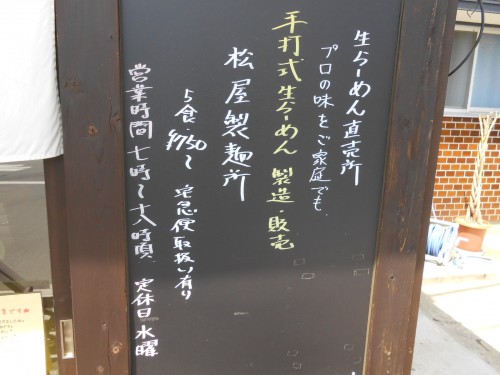 生らーめん直売所
プロの味をご家庭でも
手打式生らーめん 製造・販売
松屋製麺所
5食・¥750〜 宅急便取扱い有り
営業時間 七時〜十八時頃 定休日水曜